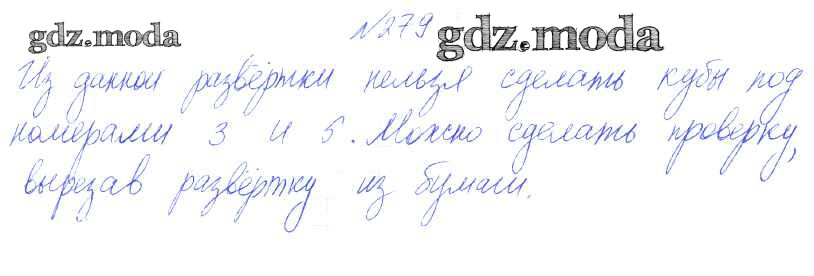 №279
gdz.moda gdz.moda
Из данной развёртки нельзя сделать кубы под
номерами 3 и 5. Можно сделать проверку,
вырезав развёртку из бумаги.